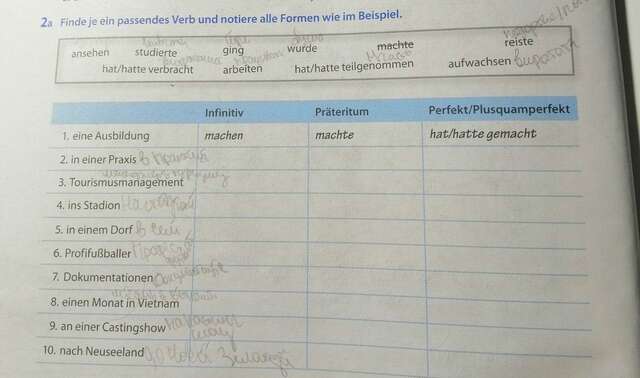 2a Finde je ein passendes Verb und notiere alle Formen wie im Beispiel.
ansehen studierte ging wurde machte reiste
hat/hatte verbracht arbeiten hat/hatte teilgenommen aufwachsen
Infinitiv Präteritum Perfekt/Plusquamperfekt
1. eine Ausbildung machen machte hat/hatte gemacht
2. in einer Praxis в
3. Tourismusmanagement
4. ins Stadion на
5. in einem Dorf в селі
6. Profifußballer
7. Dokumentationen
8. einen Monat in Vietnam
9. an einer Castingshow на
10. nach Neuseeland до Нової Зеландії